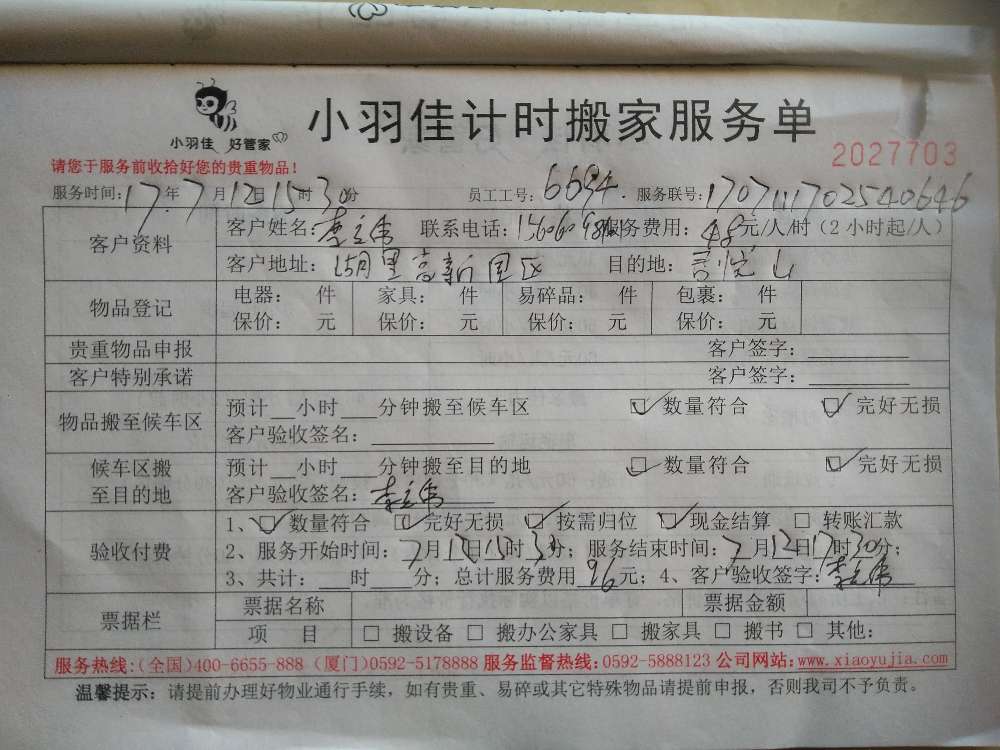 小羽佳 好管家
小羽佳计时搬家服务单
2027703
请您于服务前收拾好您的贵重物品!
服务时间:17年7月12日15时30分 员工工号:6694 服务联号:
客户资料
客户姓名:李立伟 联系电话: 服务费用:48元/人/时(2小时起/人)
客户地址: 里高新园区 目的地: 山
物品登记
电器: 件 家具: 件 易碎品: 件 包裹: 件
保价: 元 保价: 元 保价: 元 保价: 元
贵重物品申报 客户签字:
客户特别承诺 客户签字:
物品搬至候车区
预计 小时 分钟搬至候车区 ☑ 数量符合 ☑ 完好无损
客户验收签名:
候车区搬至目的地
预计 小时 分钟搬至目的地 ☑ 数量符合 ☑ 完好无损
客户验收签名:李立伟
验收付费
1、☑ 数量符合 ☑ 完好无损 ☑ 按需归位 ☑ 现金结算 □ 转账汇款
2、服务开始时间:7月12日15时30分;服务结束时间:7月12日17时30分;
3、共计: 时 分;总计服务费用 96元;4、客户验收签字:李立伟
票据栏
票据名称 票据金额
项 目 □ 搬设备 □ 搬办公家具 □ 搬家具 □ 搬书 □ 其他:
服务热线:(全国)400-6655-888(厦门)0592-5178888 服务监督热线:0592-5888123 公司网站:www.xiaoyujia.com
温馨提示:请提前办理好物业通行手续,如有贵重、易碎或其它特殊物品请提前申报,否则我司不予负责。